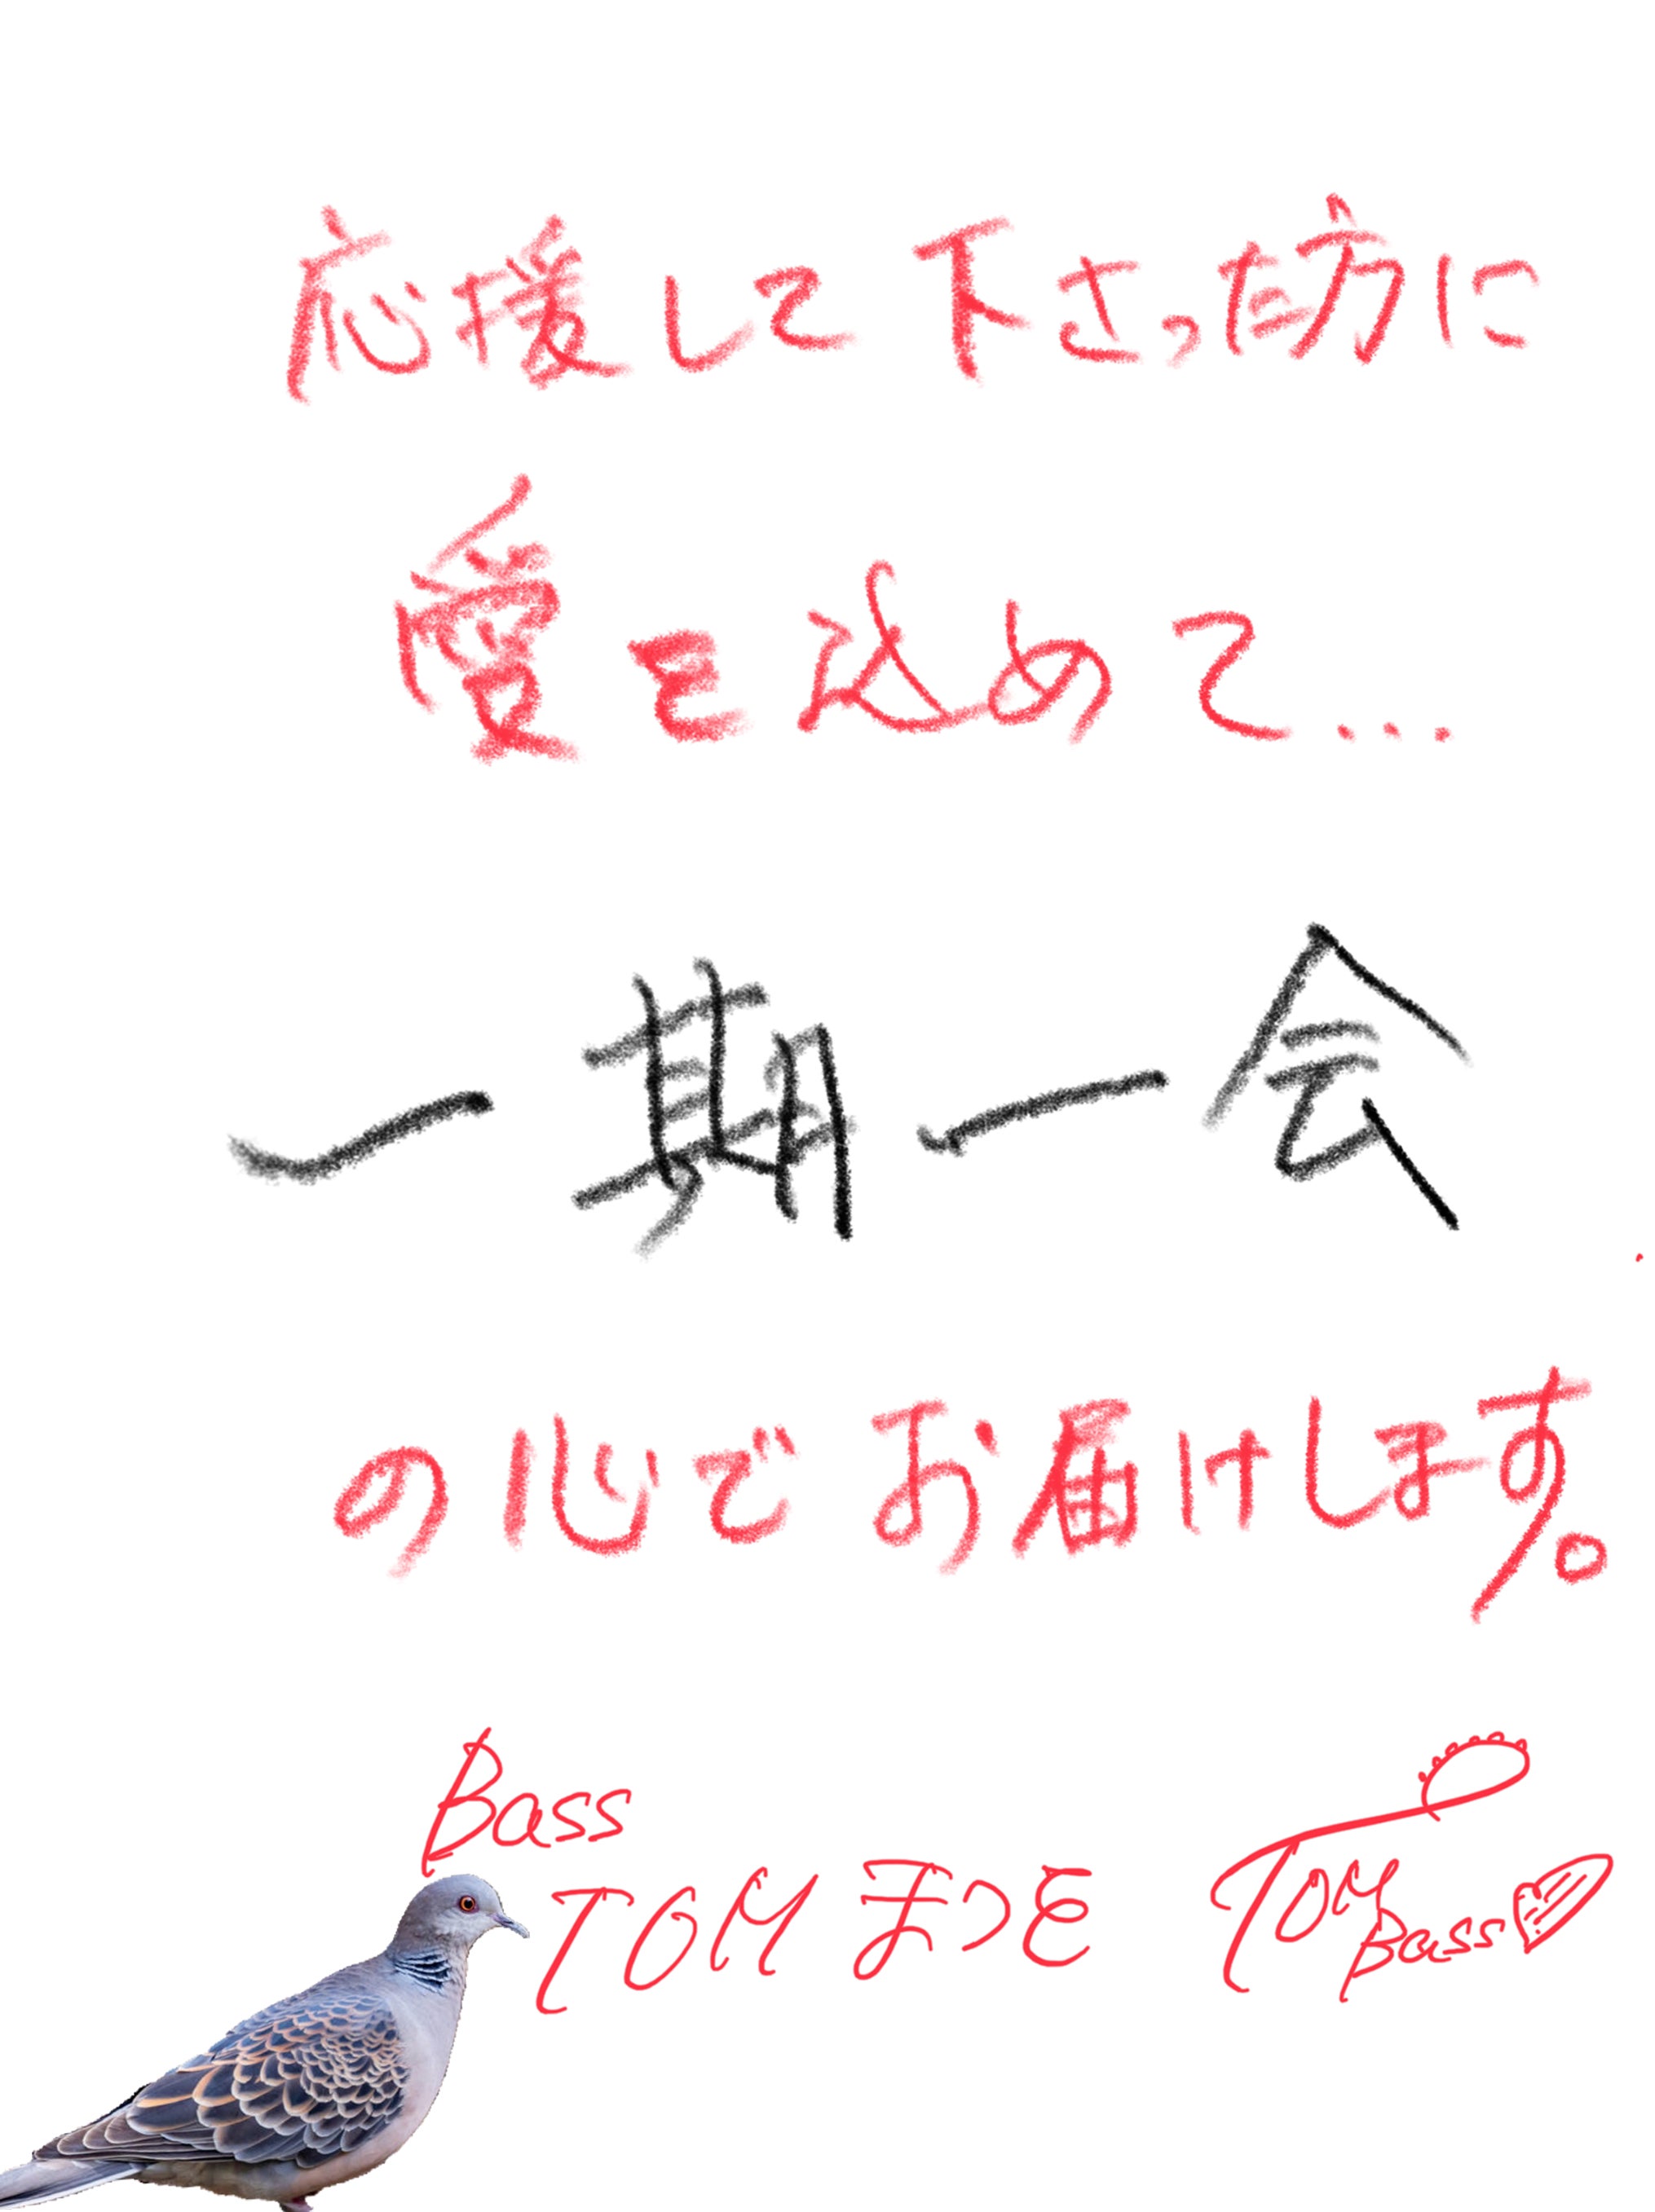 応援して下さった方に
愛を込めて...
一期一会
の心でお届けします。
Bass
TOM まつを
TOM
Bass